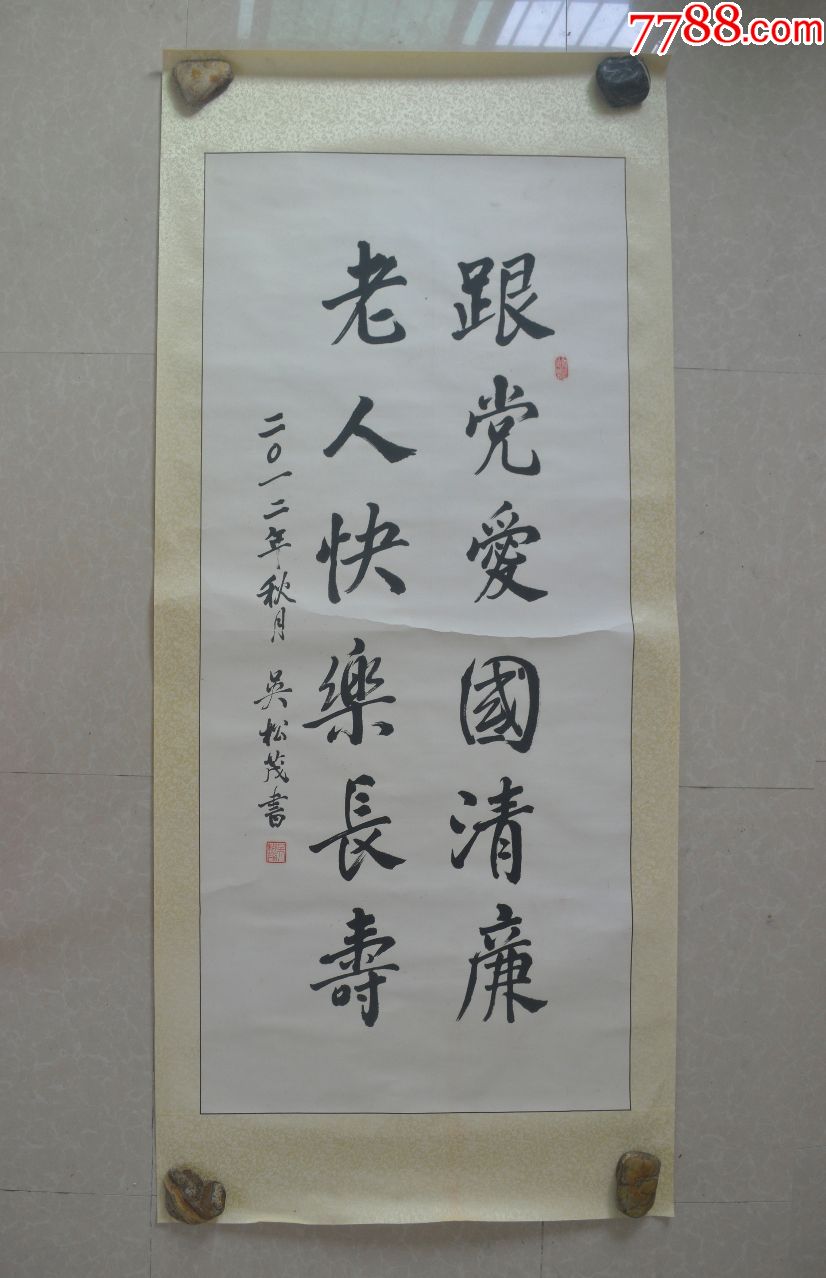 7788.com
跟党愛國清廉
老人快樂長壽
二〇一二年秋月 吳松茂書